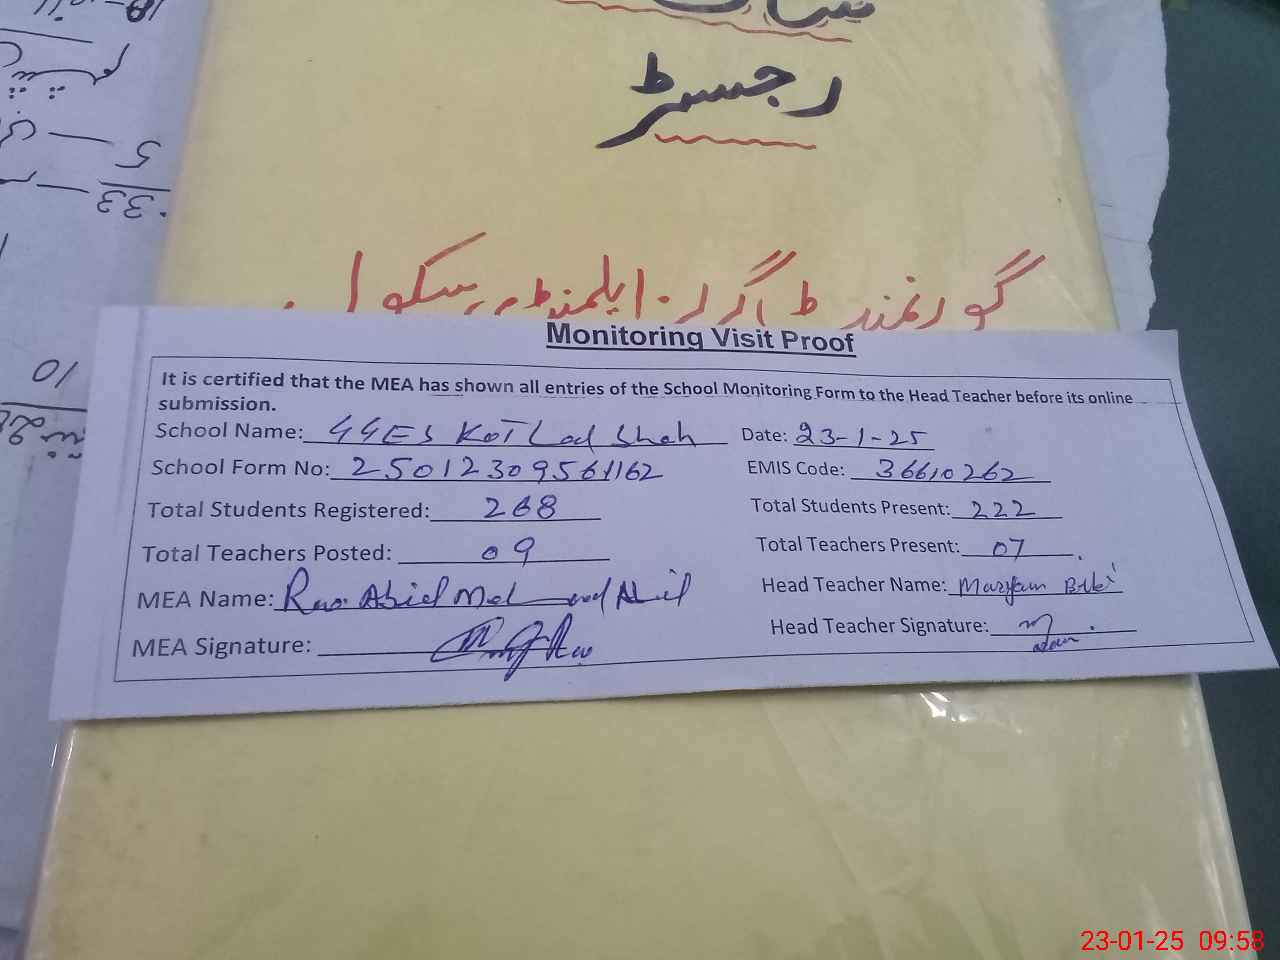 رجسٹر
گورنمنٹ گرلز ایلمنٹری سکول
5
33
10
Monitoring Visit Proof
It is certified that the MEA has shown all entries of the School Monitoring Form to the Head Teacher before its online
submission.
School Name: GGES Kot Lal Shah Date: 23-1-25
School Form No: 25012309561162 EMIS Code: 36610262
Total Students Registered: 268 Total Students Present: 222
Total Teachers Posted: 09 Total Teachers Present: 07
MEA Name: Rao Abid Mehmood Abid Head Teacher Name: Maryam Bibi
MEA Signature: Head Teacher Signature:
23-01-25 09:58